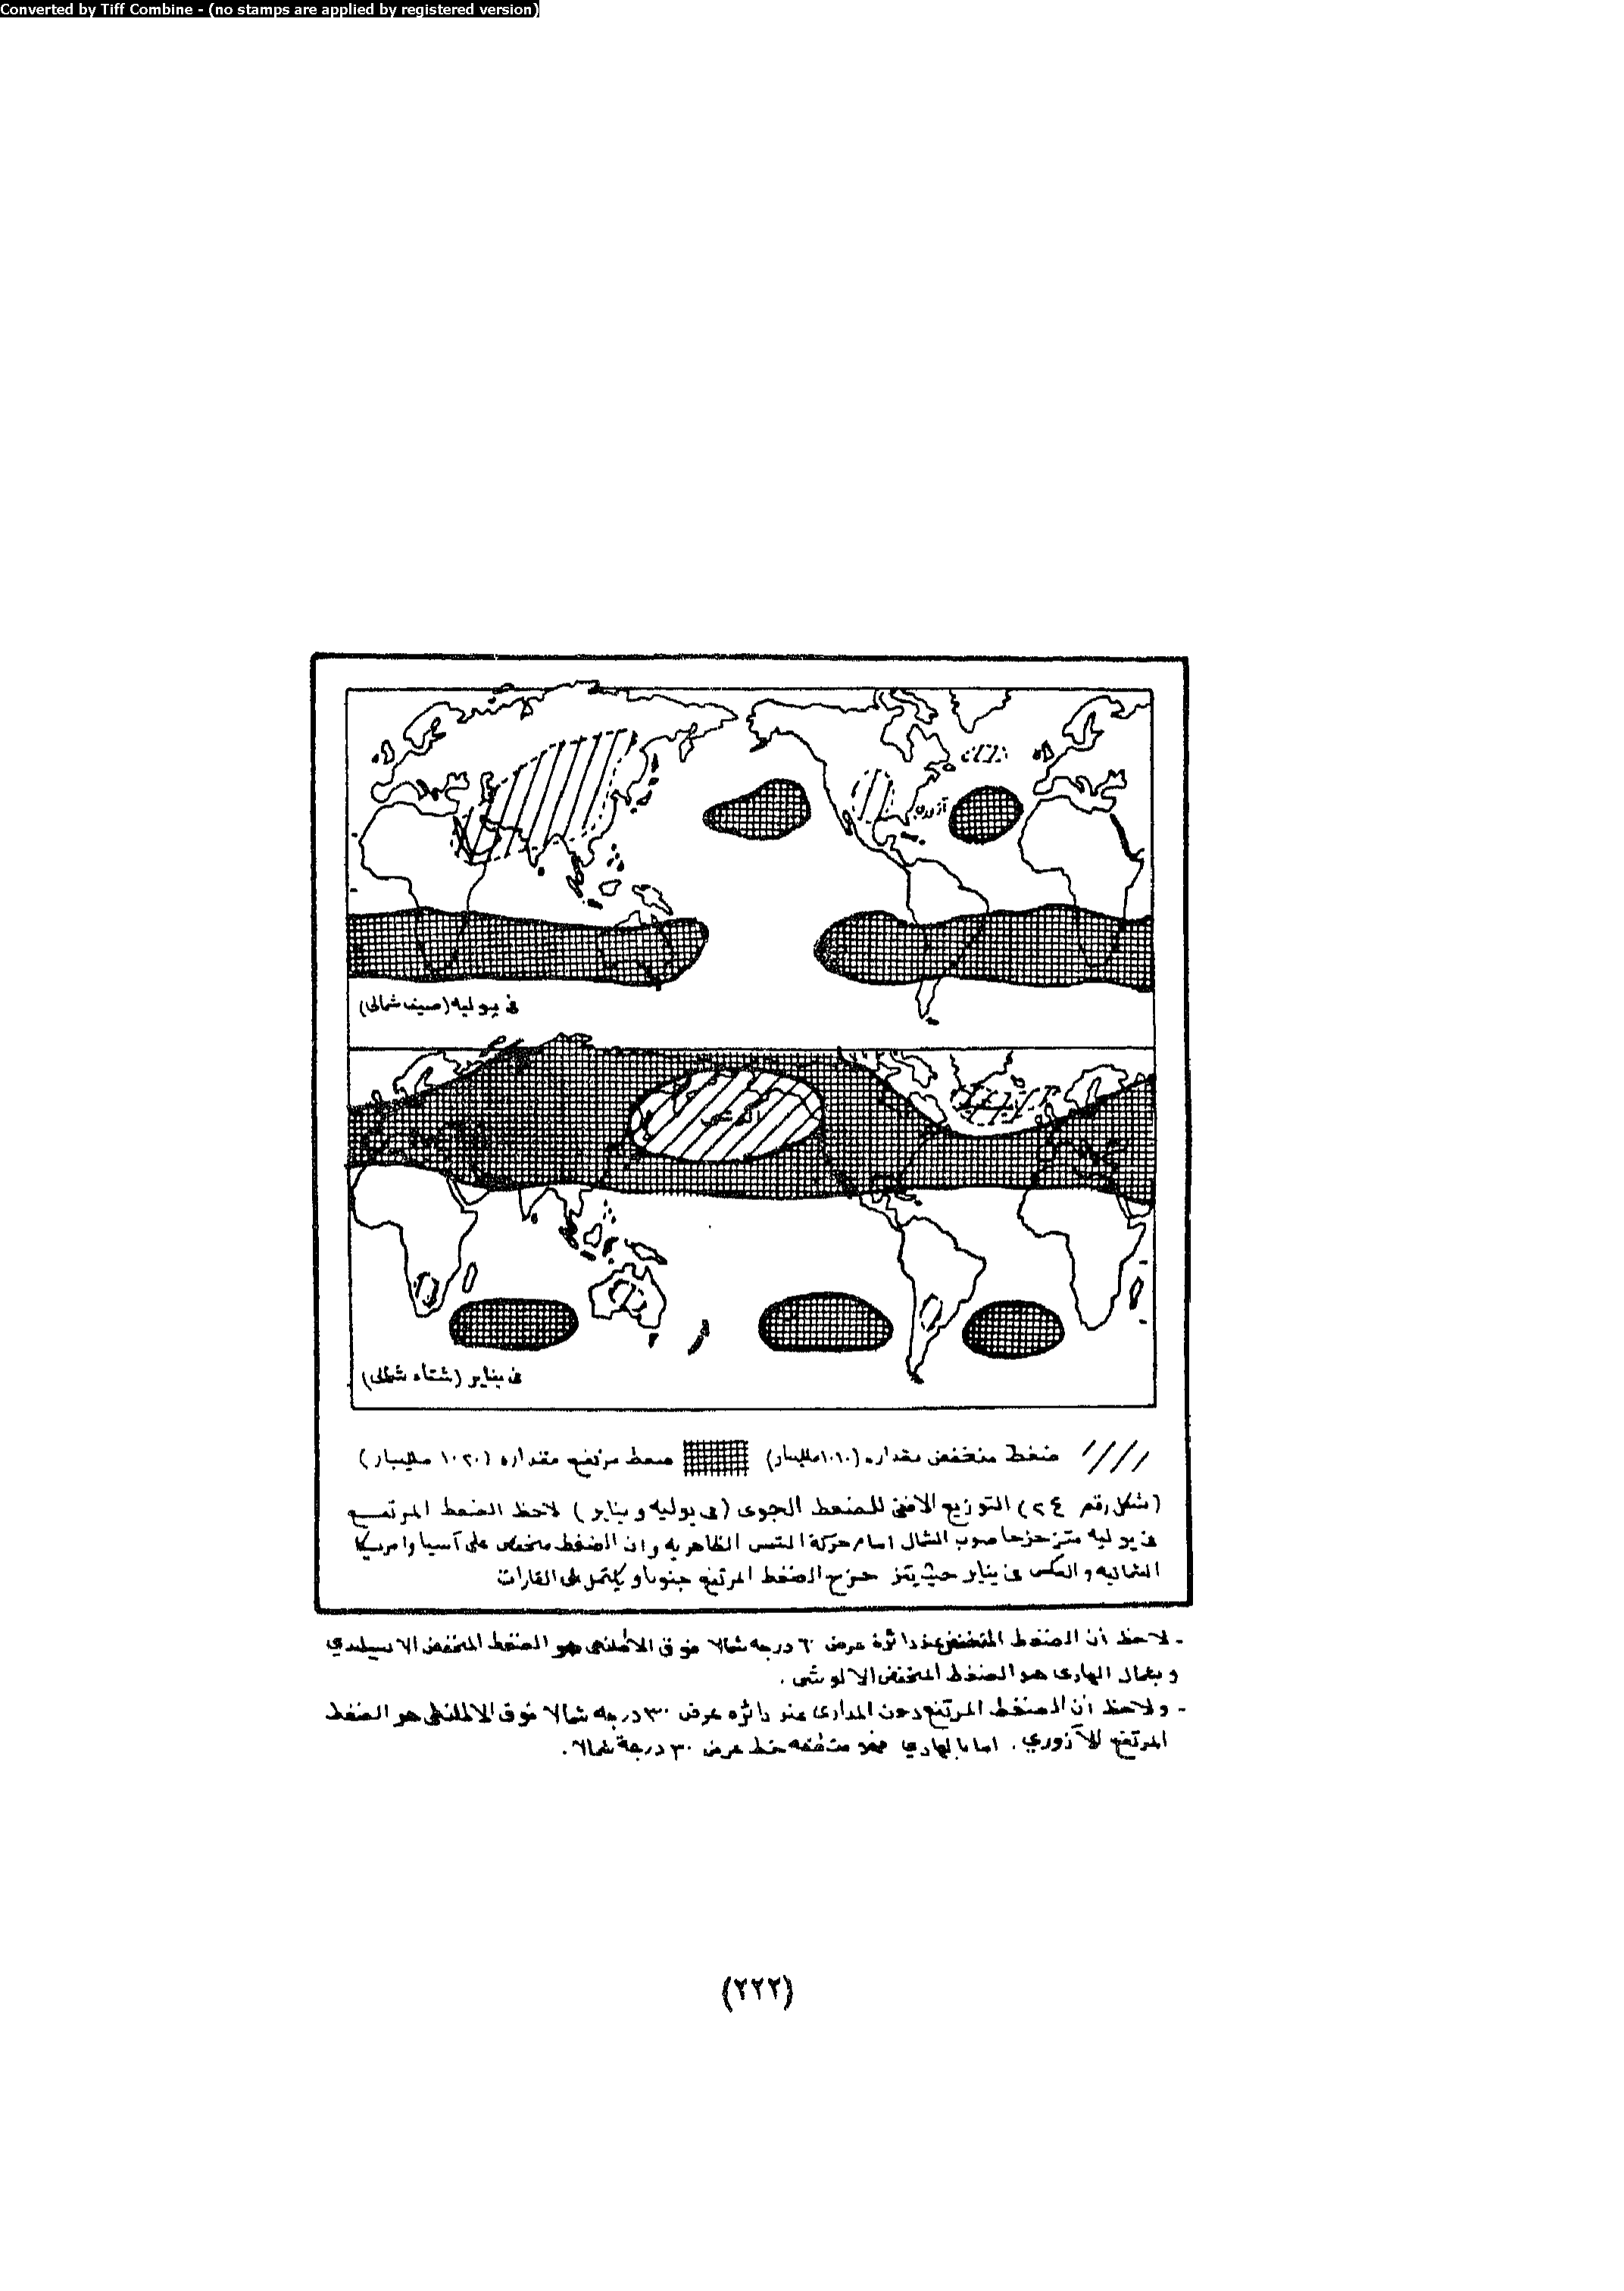 Converted by Tiff Combine - (no stamps are applied by registered version)
آزور
فى يوليه (صيف شمالى)
فى يناير (شتاء شمالى)
ضغط منخفض مقداره (١٠١٠ ملليبار) ضغط مرتفع مقداره (١٠٢٠ ملليبار)
(شكل رقم ٢٤) التوزيع الافقى للضغط الجوى (فى يوليه و يناير) لاحظ الضغط المرتفع
فى يوليه متزحزحا صوب الشمال امام حركة الشمس الظاهريه وان الضغط منخفض على آسيا وامريكا
الشماليه والعكس فى يناير حيث يتزحزح الضغط المرتفع جنوبا ويكتمل على القارات
- لاحظ أن الضغط المنخفض عند دائرة عرض ٦٠ درجه شمالا فوق الاطلنطى هو الضغط المنخفض الايسلندي
وبشمال الهادى هو الضغط المنخفض الالوشى .
- ولاحظ أن الضغط المرتفع دون المدارى عند دائره عرض ٣٠ درجه شمالا فوق الاطلنطى هو الضغط
المرتفع الآزوري . اما بالهادي فهو منطقه خط عرض ٣٠ درجة شمالا .
(٢٢٢)